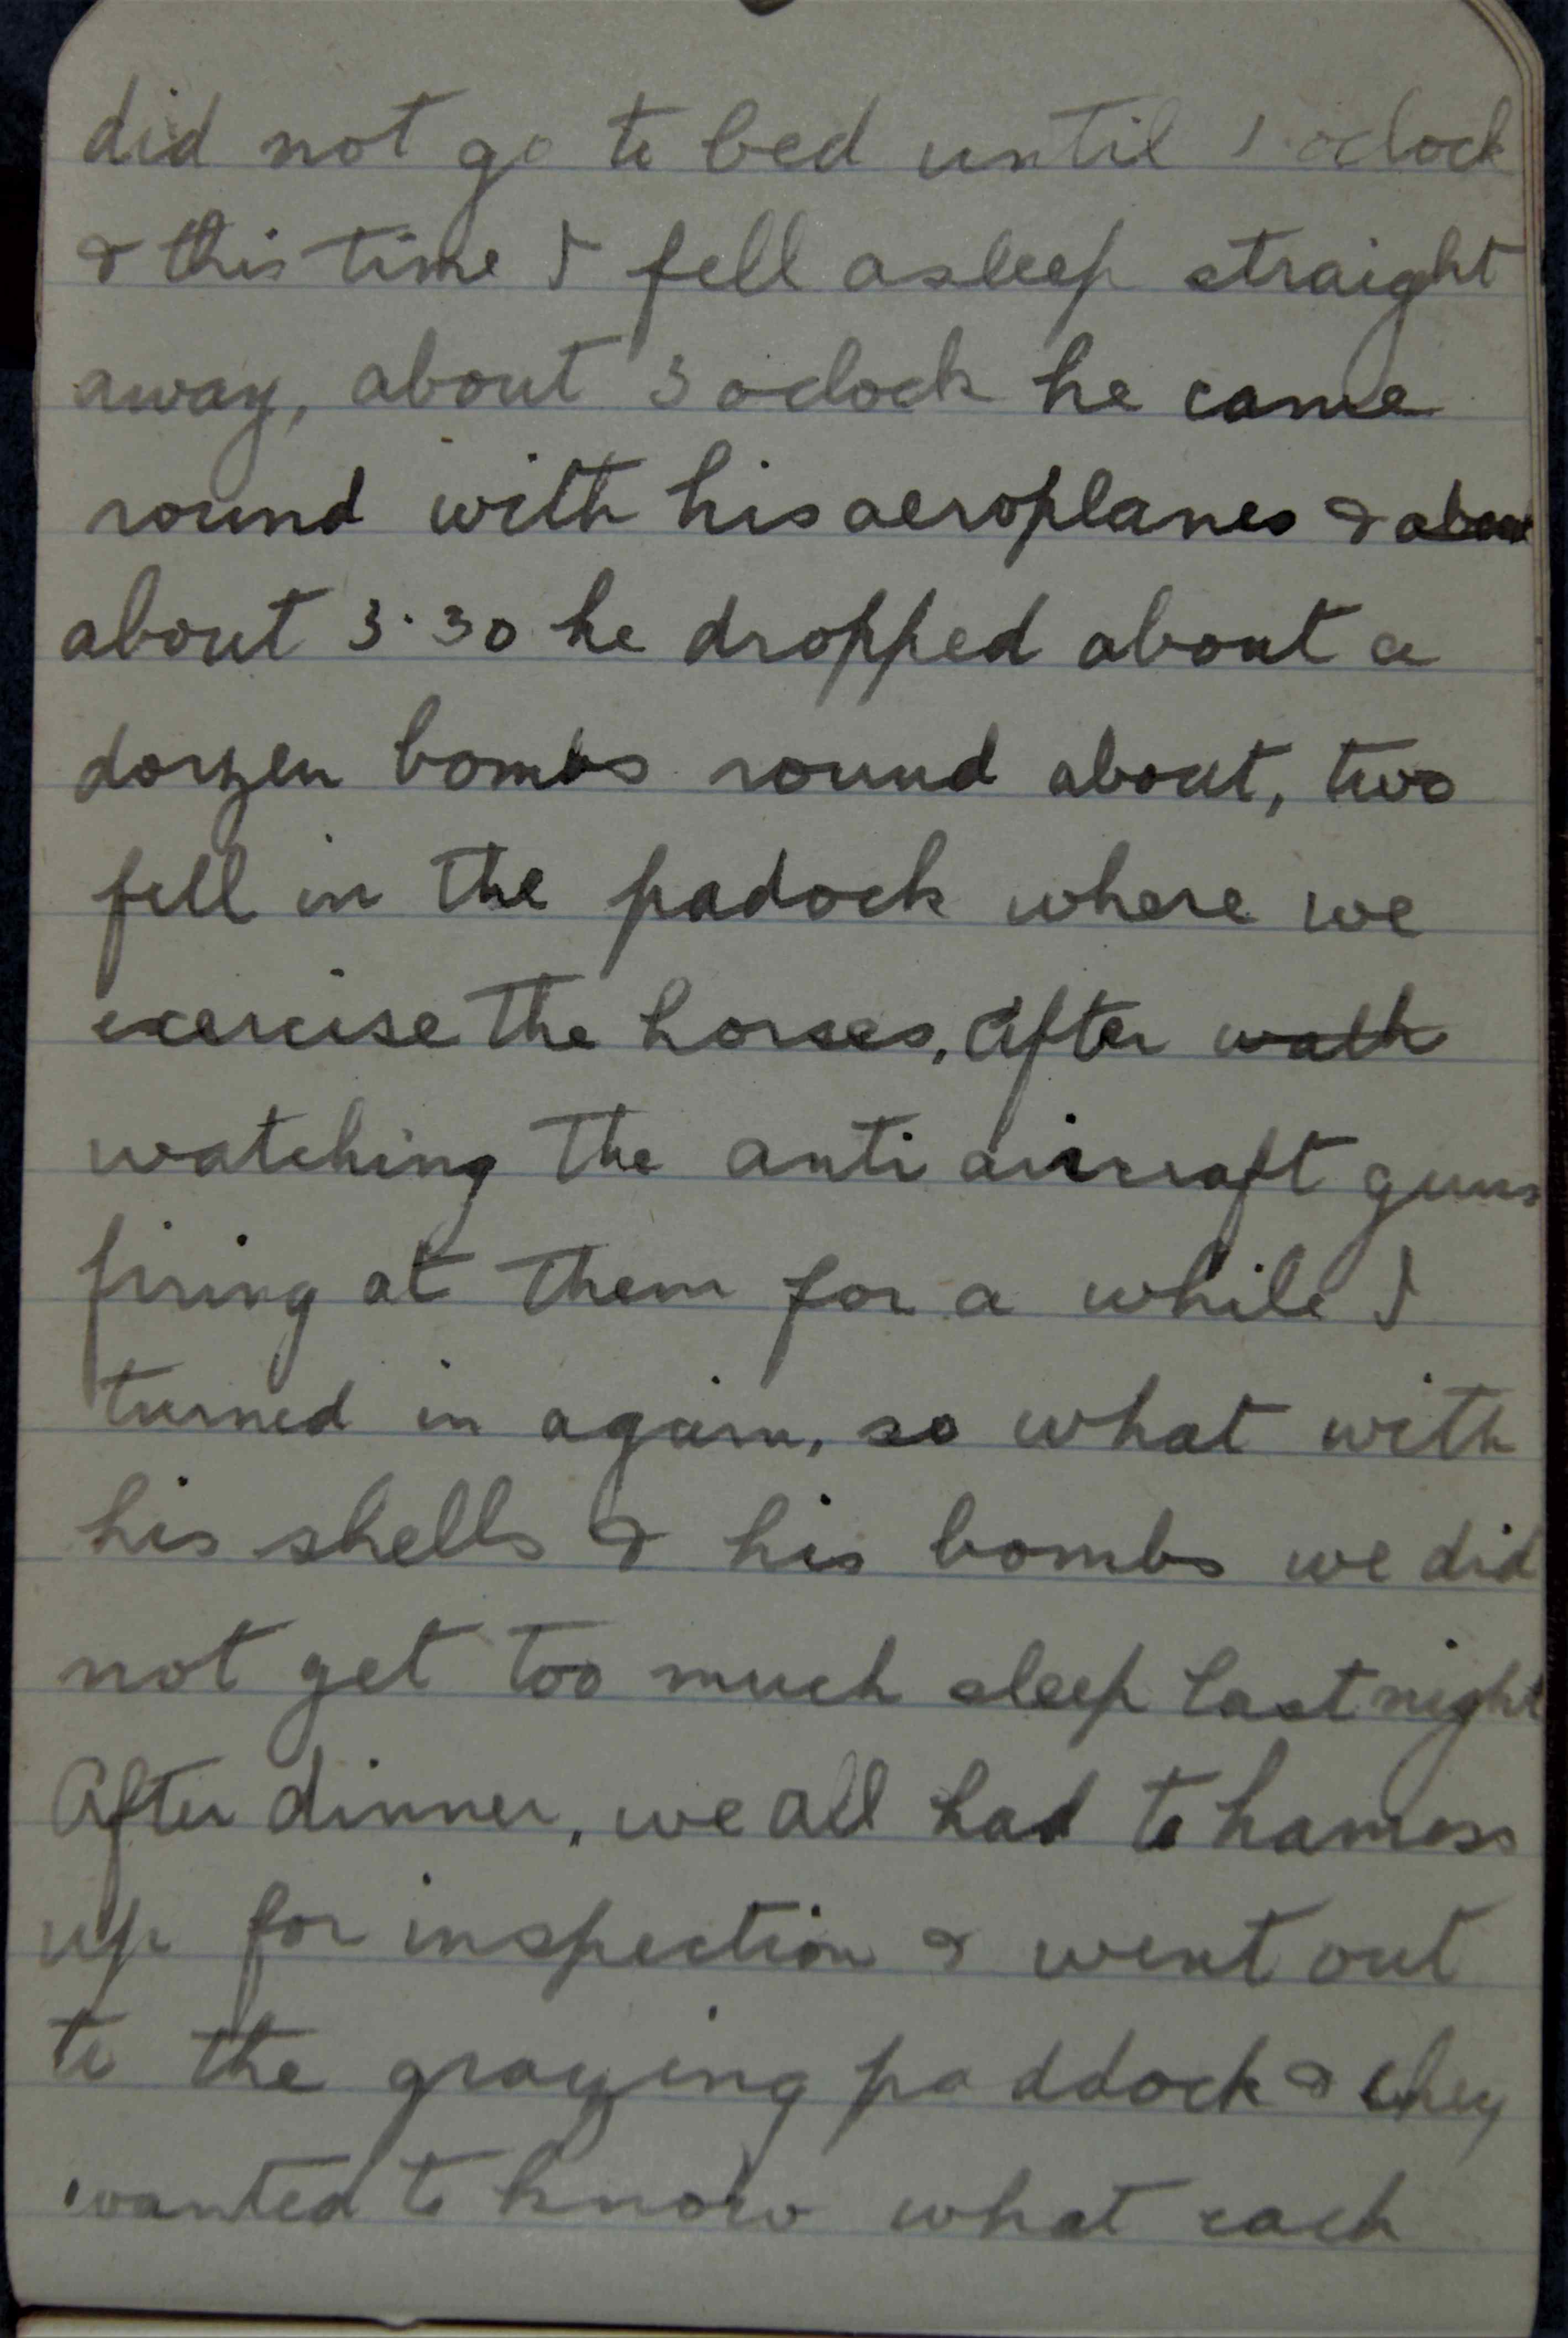 did not go to bed until 1 oclock
& this time I fell asleep straight
away, about 3 oclock he came
round with his aeroplanes & about
about 3.30 he dropped about a
dorzen bombs round about, two
fell in the padock where we
exercise the horses. After wath
watching the anti aircraft guns
firing at them for a while I
turned in again, so what with
his shells & his bombs we did
not get too much sleep last night
After dinner, we all had to harness
up for inspection & went out
to the grazing paddock & they
wanted to know what each